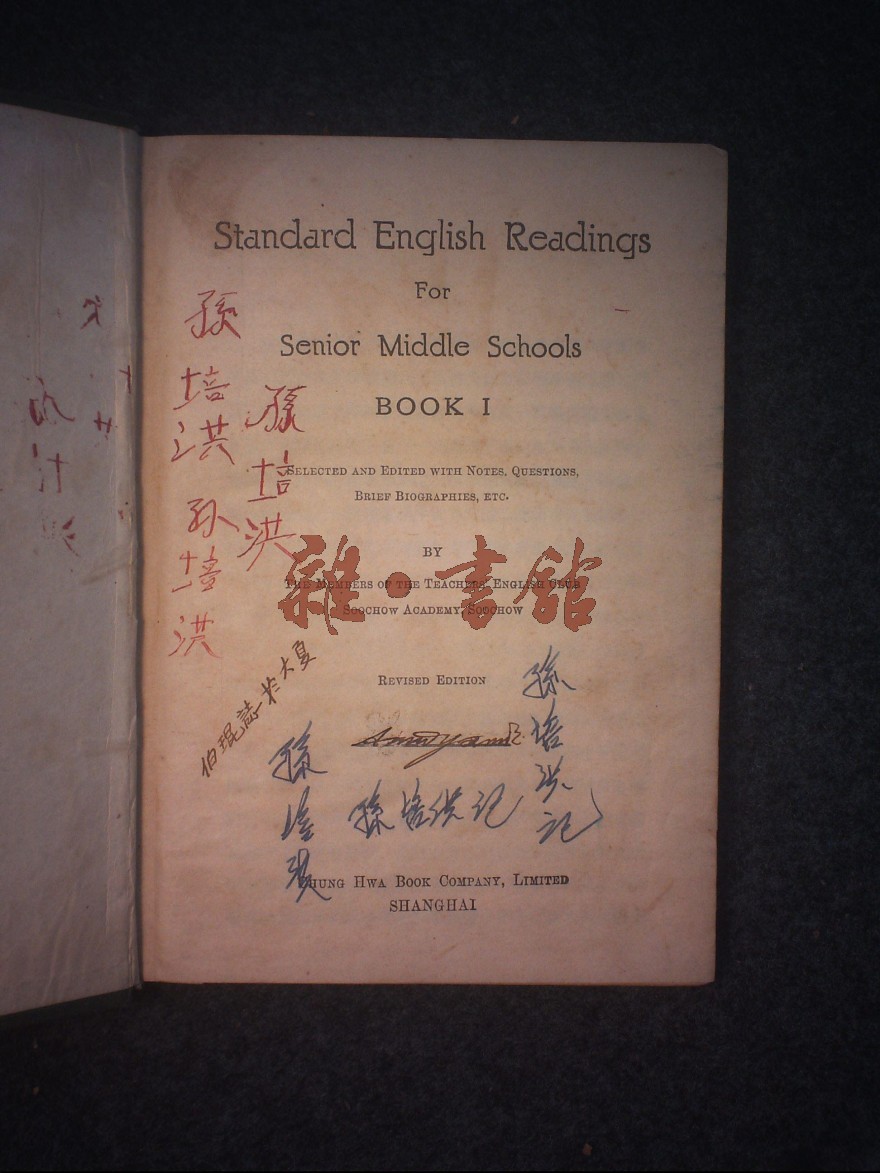 Standard English Readings
For
Senior Middle Schools
BOOK I
SELECTED AND EDITED WITH NOTES, QUESTIONS,
BRIEF BIOGRAPHIES, ETC.
BY
THE MEMBERS OF THE TEACHERS' ENGLISH CLUB
SOOCHOW ACADEMY, SOOCHOW
REVISED EDITION
CHUNG HWA BOOK COMPANY, LIMITED
SHANGHAI
孫培洪
孫培洪
孙培洪
伯琨誌於大夏
孫培洪記
孫培洪记
孫培
雜·書館